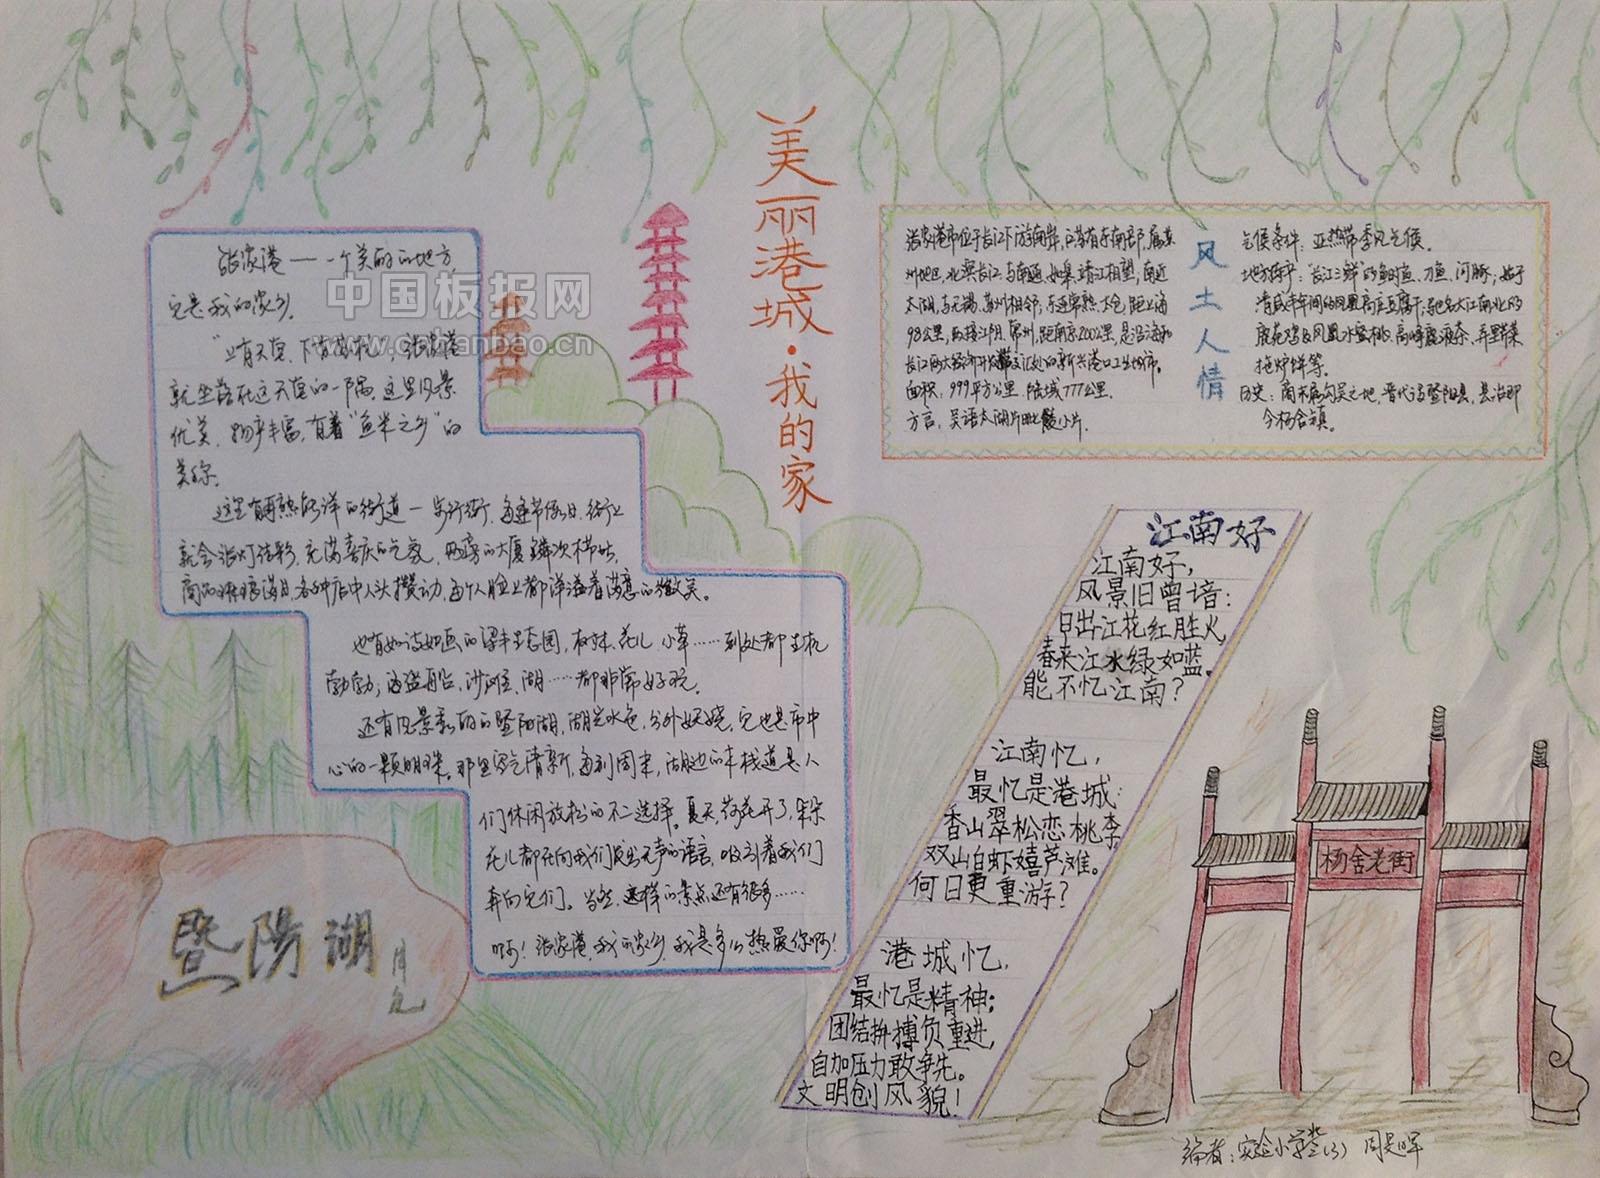 美丽港城·我的家
中国板报网
www.chanbao.cn
张家港——一个美丽的地方,
它是我的家乡。
“上有天堂、下有苏杭”,张家港
就坐落在这天堂的一隅,这里风景
优美、物产丰富,有着“鱼米之乡”的
美称。
这里有热闹的街道一步行街,每逢节假日,街上
就会张灯结彩,充满喜庆的气氛,两旁的大厦鳞次栉比,
商品琳琅满目,各种店中人头攒动,每个人脸上都洋溢着满意的微笑。
也有如诗如画的梁丰生态园,树林、花儿、小草……到处都生机
勃勃;海盗船、沙滩、湖……都非常好玩。
还有风景秀丽的暨阳湖,湖光水色,分外妖娆,它也是市中
心的一颗明珠。那里空气清新,每到周末,湖边的木栈道是人
们休闲放松的不二选择。夏天,荷花开了,朵朵
花儿都在向我们发出无声的语言,吸引着我们
奔向它们。当然,这样的景点还有很多……
啊!张家港,我的家乡,我是多么热爱你啊!
暨陽湖
风土人情
张家港市位于长江下游南岸,江苏省东南部,属苏
州地区,北滨长江,与南通、如皋、靖江相望,南近
太湖,与无锡、苏州相邻,东连常熟、太仓,距上海
98公里,西接江阴、常州,距南京200公里,是沿海和
长江两大经济开发带交汇处的新兴港口工业城市。
面积:999平方公里,陆域777公里。
方言:吴语太湖片小片。
气候条件:亚热带季风气候。
地方特产:“长江三鲜”的鲥鱼、刀鱼、河豚;始于
清咸丰年间的凤凰高庄豆腐干;驰名大江南北的
鹿苑鸡及凤凰水蜜桃、高峰、弄里
拖炉饼等。
历史:商末属勾吴之地,晋代设暨阳县,县治即
今杨舍镇。
江南好
江南好,
风景旧曾谙:
日出江花红胜火,
春来江水绿如蓝。
能不忆江南?
江南忆,
最忆是港城:
香山翠松恋桃李,
双山白虾嬉芦滩。
何日更重游?
港城忆,
最忆是精神;
团结拼搏负重进,
自加压力敢争先。
文明创风貌!
杨舍老街
编者:实验小学(3)